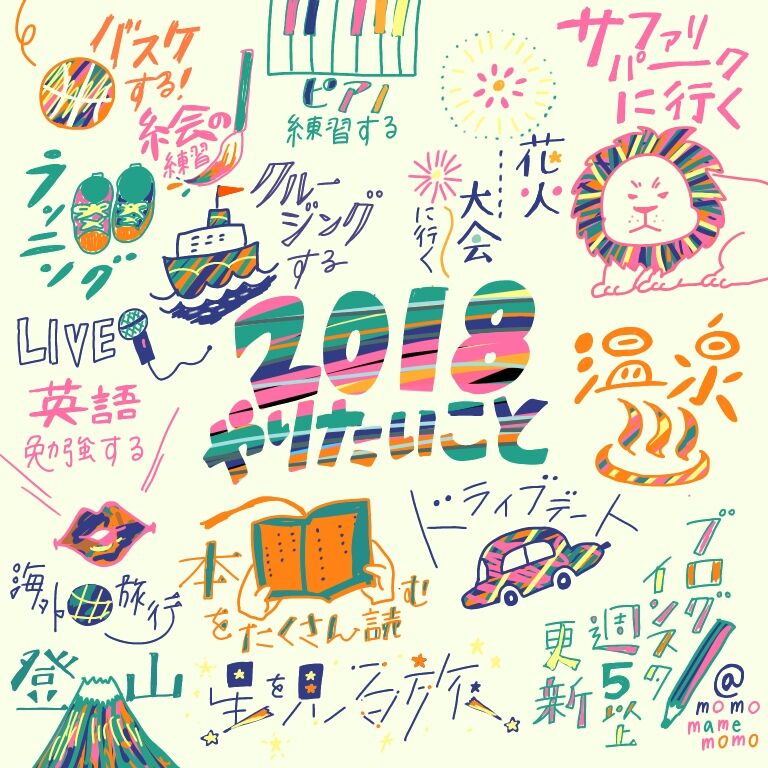 バスケ
する!
ピアノ
練習する
サファリ
パーク
に行く
絵の
練習
ランニング
クルー
ジング
する
花火
大会
に行く
LIVE
2018
やりたいこと
温泉
英語
勉強する
ドライブデート
本
をたくさん読む
海外旅行
ブログ
インスタ
週5以上
更新
登山
星を見る旅
@
momo
mame
momo